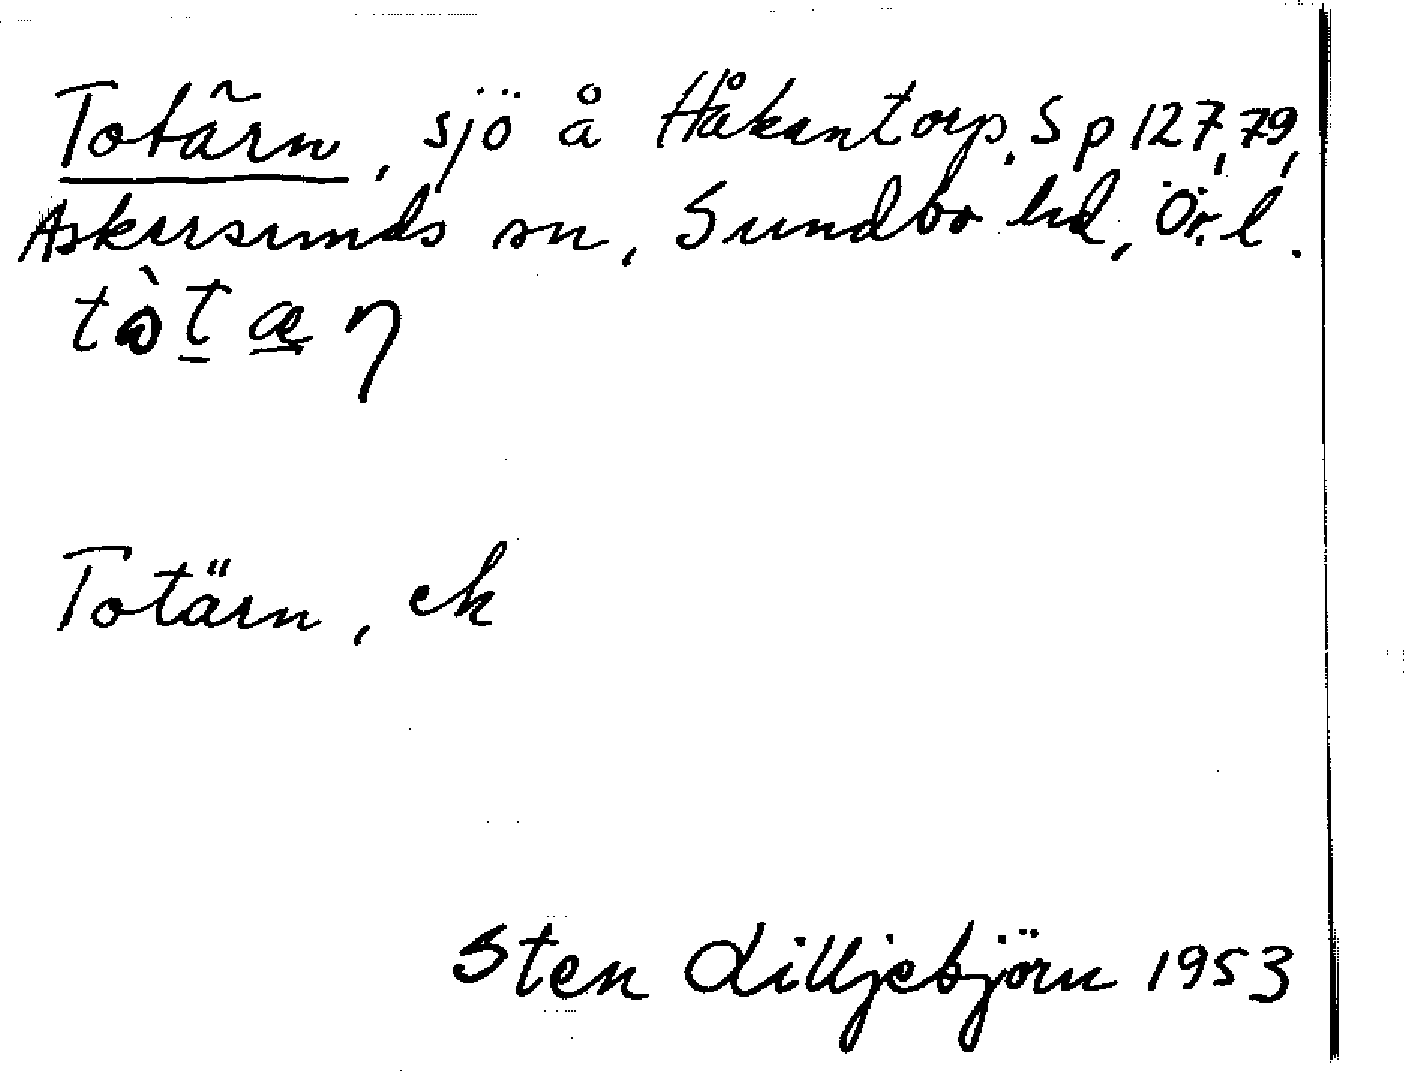 Totärn, sjö å Håkantorp, Sp 127, 79,
Askersunds sn, Sundbo hd, Ör. l.
tòt æ η
Totärn, ek
Sten Lilljebjörn 1953